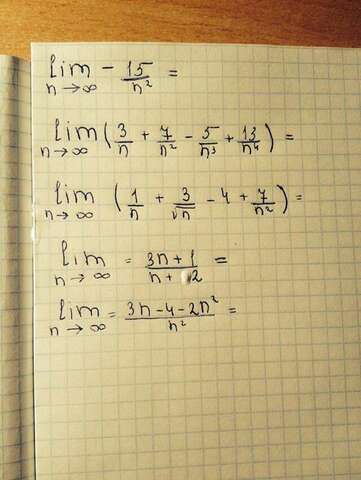 lim n→∞ - 15/n² =
lim n→∞ (3/n + 7/n² - 5/n³ + 13/n⁴) =
lim n→∞ (1/n + 3/√n - 4 + 7/n²) =
lim n→∞ = 3n+1/n+2 =
lim n→∞ = 3n-4-2n²/n² =